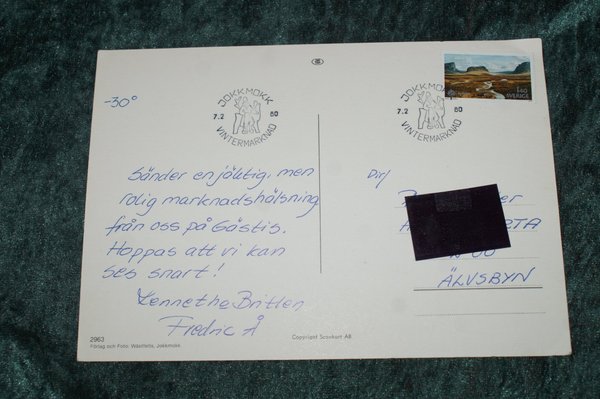 -30°
JOKKMOKK
7.2 80
VINTERMARKNAD
JOKKMOKK
7.2 80
VINTERMARKNAD
1.40
SVERIGE
Sänder en jöktig, men
rolig marknadshälsning
från oss på Gästis.
Hoppas att vi kan
ses snart!
Kennethe Britten
Fredric Å
Dir/
ÄLVSBYN
2963
Förlag och Foto: Wästfelts, Jokkmokk.
Copyright Scankort AB.